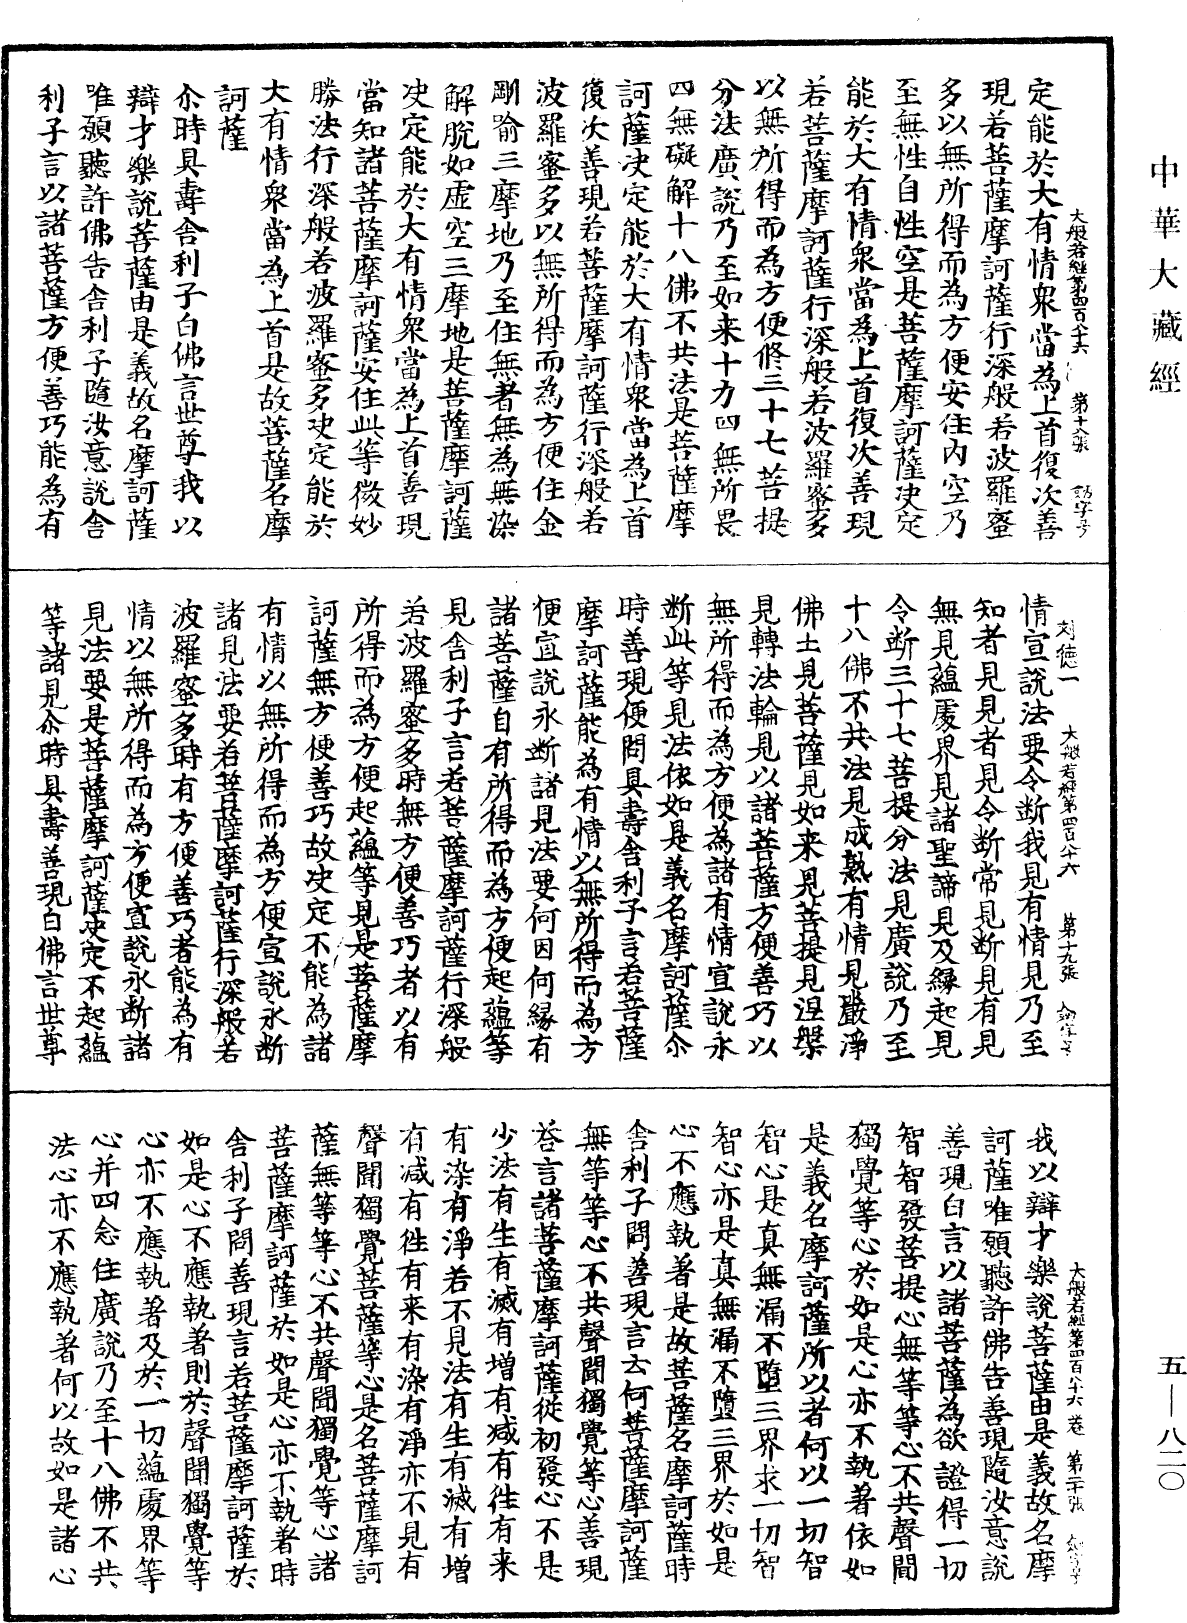 中華大藏經
大般若經第四百八十六 第十八張
定能於大有情衆當為上首復次善
現若菩薩摩訶薩行深般若波羅蜜
多以無所得而為方便安住內空乃
至無性自性空是菩薩摩訶薩決定
能於大有情衆當為上首復次善現
若菩薩摩訶薩行深般若波羅蜜多
以無所得而為方便修三十七菩提
分法廣說乃至如来十力四無所畏
四無礙解十八佛不共法是菩薩摩
訶薩決定能於大有情衆當為上首
復次善現若菩薩摩訶薩行深般若
波羅蜜多以無所得而為方便住金
剛喻三摩地乃至住無著無為無染
解脫如虛空三摩地是菩薩摩訶薩
決定能於大有情衆當為上首善現
當知諸菩薩摩訶薩安住此等微妙
勝法行深般若波羅蜜多決定能於
大有情衆當為上首是故菩薩名摩
訶薩
尒時具壽舍利子白佛言世尊我以
辯才樂說菩薩由是義故名摩訶薩
唯願聽許佛告舍利子隨汝意說舍
利子言以諸菩薩方便善巧能為有
刘德一 大般若經第四百八十六 第十九張
情宣說法要令斷我見有情見乃至
知者見見者見令斷常見斷見有見
無見蘊處界見諸聖諦見及緣起見
令断三十七菩提分法見廣說乃至
十八佛不共法見成熟有情見嚴淨
佛土見菩薩見如來見菩提見涅槃
見轉法輪見以諸菩薩方便善巧以
無所得而為方便為諸有情宣說永
断此等見法依如是義名摩訶薩尒
時善現便問具壽舍利子言若菩薩
摩訶薩能為有情以無所得而為方
便宣說永斷諸見法要何因何緣有
諸菩薩自有所得而為方便起蘊等
見舍利子言若菩薩摩訶薩行深般
若波羅蜜多時無方便善巧者以有
所得而為方便起蘊等見是菩薩摩
訶薩無方便善巧故決定不能為諸
有情以無所得而為方便宣說永断
諸見法要若菩薩摩訶薩行深般若
波羅蜜多時有方便善巧者能為有
情以無所得而為方便宣說永斷諸
見法要是菩薩摩訶薩決定不起蘊
等諸見尒時具壽善現白佛言世尊
大般若經第四百八十六卷 第二十張
我以辯才樂說菩薩由是義故名摩
訶薩唯願聽許佛告善現隨汝意說
善現白言以諸菩薩為欲證得一切
智智發菩提心無等等心不共聲聞
獨覺等心於如是心亦不執著依如
是義名摩訶薩所以者何以一切智
智心是真無漏不墮三界求一切智
智心亦是真無漏不墮三界於如是
心不應執著是故菩薩名摩訶薩時
舍利子問善現言云何菩薩摩訶薩
無等等心不共聲聞獨覺等心善現
荅言諸菩薩摩訶薩從初發心不見
少法有生有滅有增有減有往有來
有染有淨若不見法有生有滅有增
有减有徃有来有染有淨亦不見有
聲聞獨覺菩薩等心是名菩薩摩訶
薩無等等心不共聲聞獨覺等心諸
菩薩摩訶薩於如是心亦不執着時
舍利子問善現言若菩薩摩訶薩於
如是心不應執著則於聲聞獨覺等
心亦不應執著及於一切蘊處界等
心并四念住廣說乃至十八佛不共
法心亦不應執著何以故如是諸心
五—八二〇